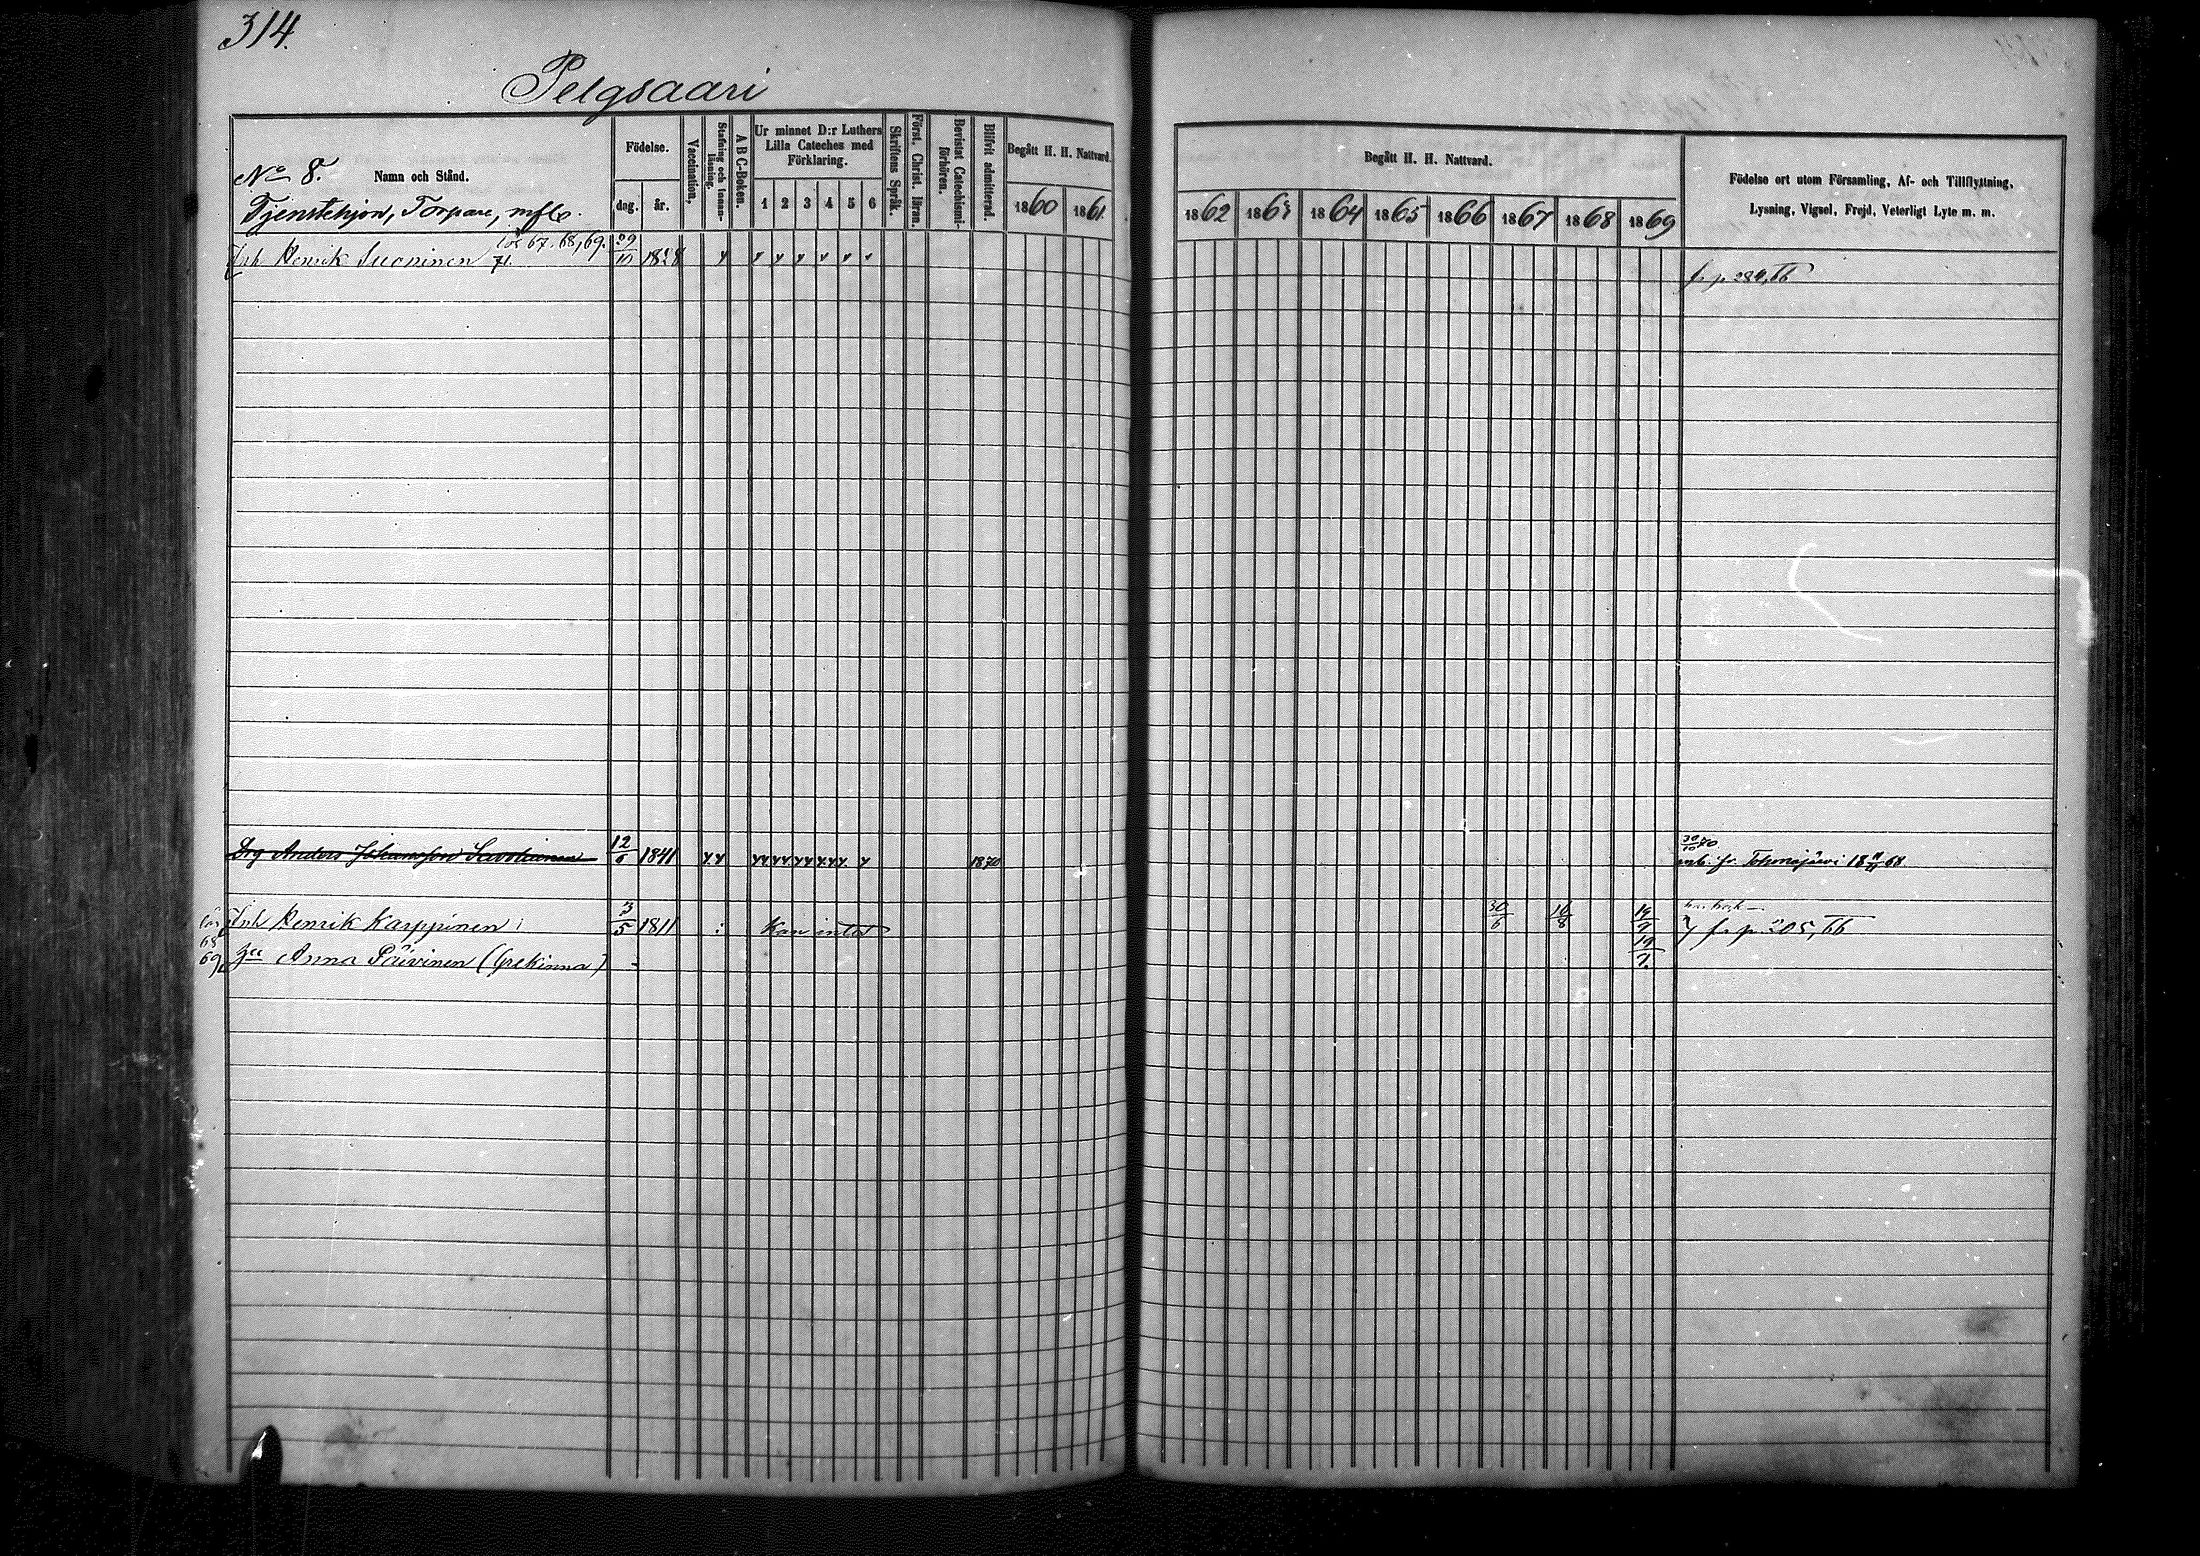 314.
Pelgsaari
No 8. Namn och Stånd.
Tjenstehjon, Torpare, mfl.
Födelse.
dag. år.
Vaccination,
Stafning och Innan-läsning.
A B C-Boken.
Ur minnet D:r Luthers Lilla Cateches med Förklaring.
1 2 3 4 5 6
Skriftens Språk.
Först. Christ. läran.
Bevistat Catechismi-förhören.
Blifvit admitterad.
Begått H. H. Nattvard.
1860 1861.
Begått H. H. Nattvard.
1862 1863 1864 1865 1866 1867 1868 1869
Födelse ort utom Församling, Af- och Tillflyttning,
Lysning, Vigsel, Frejd, Veterligt Lyte m. m.
67. 68, 69.
Inh Henrik Suoninen 71. 29/10 1828 fr p 284, 66
30/10 70
Drg Anders Johansson 12/6 1841 1870 inb. fr. Tohmajärvi 68
Inh Henrik Karppinen 3/5 1811 Kan intet 30/6 16/8 19/7 fr p 205, 66
68
69 Anna Päivinen (Grekinna) 19/7.